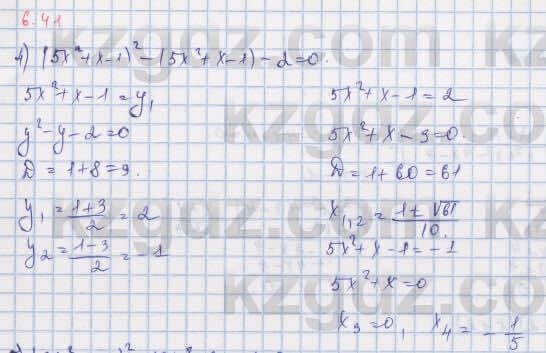 6.41
1) (5x²+x-1)²-(5x²+x-1)-2=0.
5x²+x-1=y,
y²-y-2=0
D=1+8=9.
y₁=(1+3)/2=2
y₂=(1-3)/2=-1
5x²+x-1=2
5x²+x-3=0.
D=1+60=61
x₁,₂=(1±√61)/10.
5x²+x-1=-1
5x²+x=0
x₃=0, x₄=-1/5
kzgaz.com